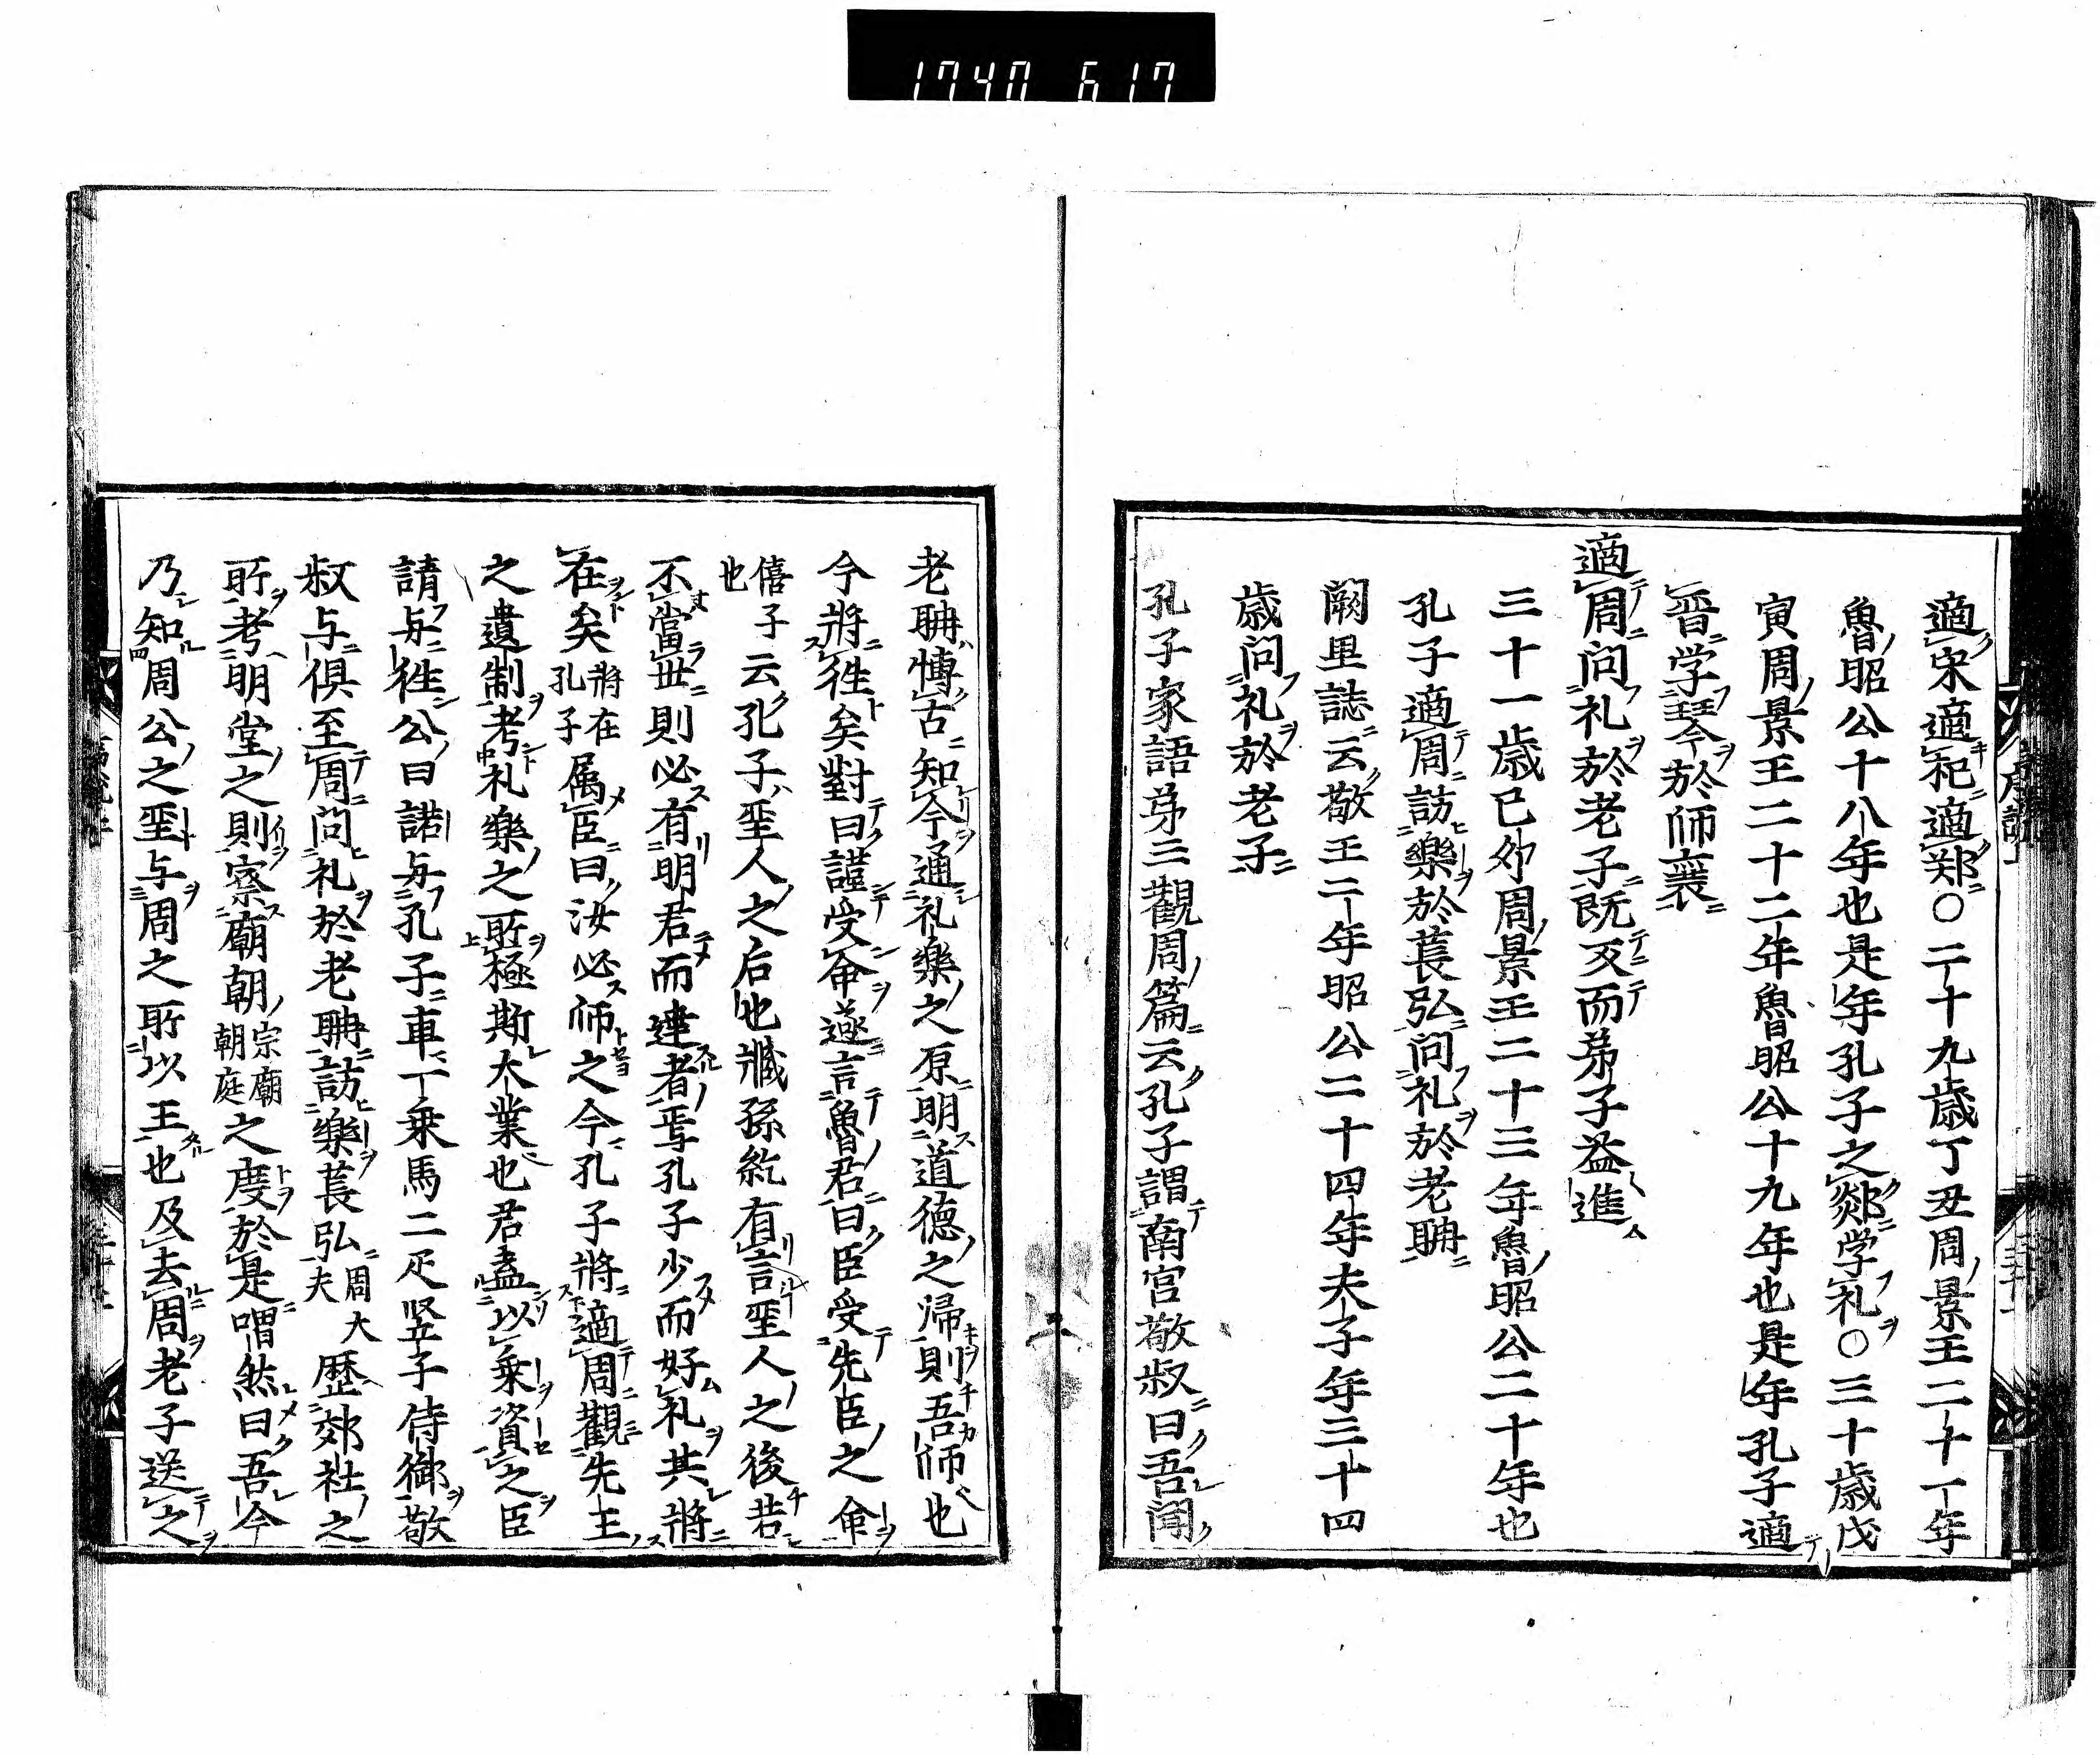 1740 617
適宋適祀適郑○二十九歳丁丑周景王二十一年
魯昭公十八年也是年孔子之郯学礼○三十歳戊
寅周景王二十二年魯昭公十九年也是年孔子適
晋学琴於師襄
適周问礼於老子既反而弟子益進
三十一歳己卯周景王二十三年魯昭公二十年也
孔子適周訪樂於萇弘问礼於老聃
闕里誌云敬王二年昭公二十四年夫子年三十四
歳问礼於老子
孔子家語弟三觀周篇云孔子謂南宮敬叔曰吾聞
老聃慱古知今通礼樂之原明道德之帰則吾師也
今將往矣對曰謹受命遂言魯君曰臣受先臣之命
僖子
也
云孔子聖人之后也臧孫紇有言聖人之後若
不當世則必有明君而達者焉孔子少而好礼其將
在矣
將在
孔子
属臣曰汝必師之今孔子將適周觀先王
之遺制考礼樂之所極斯大業也君盍以乗資之臣
請与往公曰諾与孔子車一乗馬二疋竪子侍御敬
叔与俱至周问礼於老聃訪樂萇弘
周大
夫
歴郊社之
所考明堂之則察廟朝
宗廟
朝庭
之度於是喟然曰吾今
乃知周公之聖与周之所以王也及去周老子送之